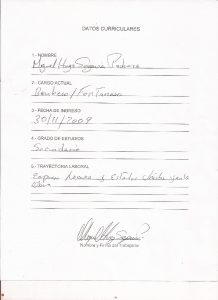 DATOS CURRICULARES
1.- NOMBRE
Miguel Hugo Segura
2.- CARGO ACTUAL
Bombero / Fontanero
3.- FECHA DE INGRESO
30/11/2009
4.- GRADO DE ESTUDIOS
Secundaria
5.- TRAYECTORIA LABORAL
y Estados Unidos
Nombre y Firma del Trabajador